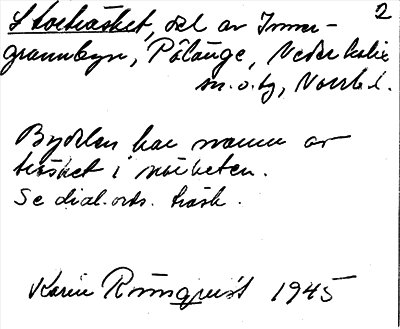 2
Storträsket, del av Inner-
grannbyn, Pålänge, Nederkalix
sn. o. tg, Norrb. l.
Bydelen har namn av
träsket i närheten.
Se dial.ords. träsk.
Karin Rönnqvist 1945